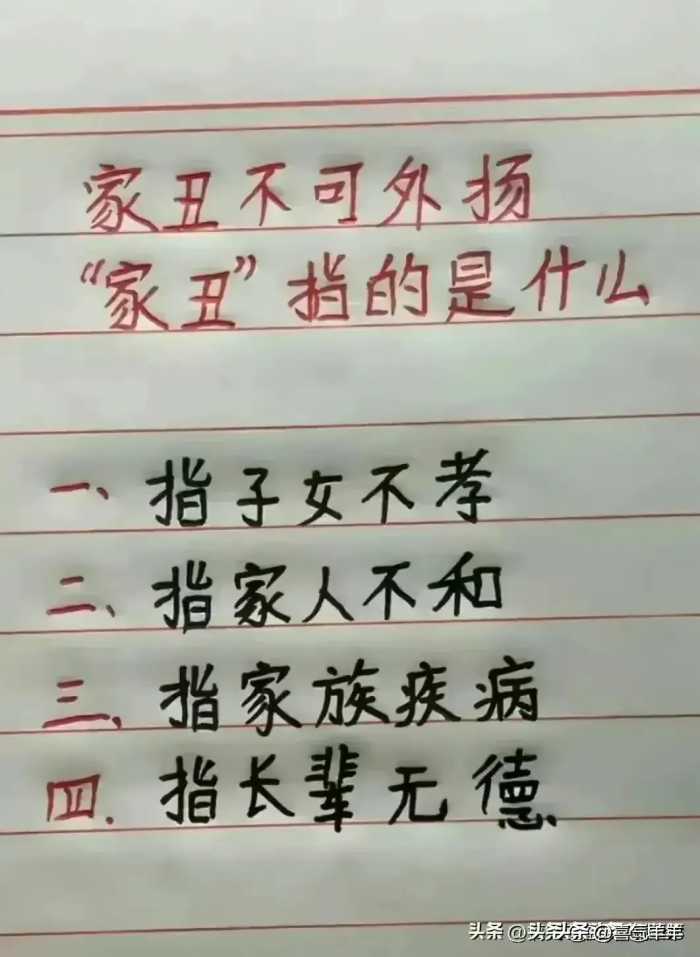 家丑不可外扬
“家丑”指的是什么
一、指子女不孝
二、指家人不和
三、指家族疾病
四.指长辈无德
头条 @